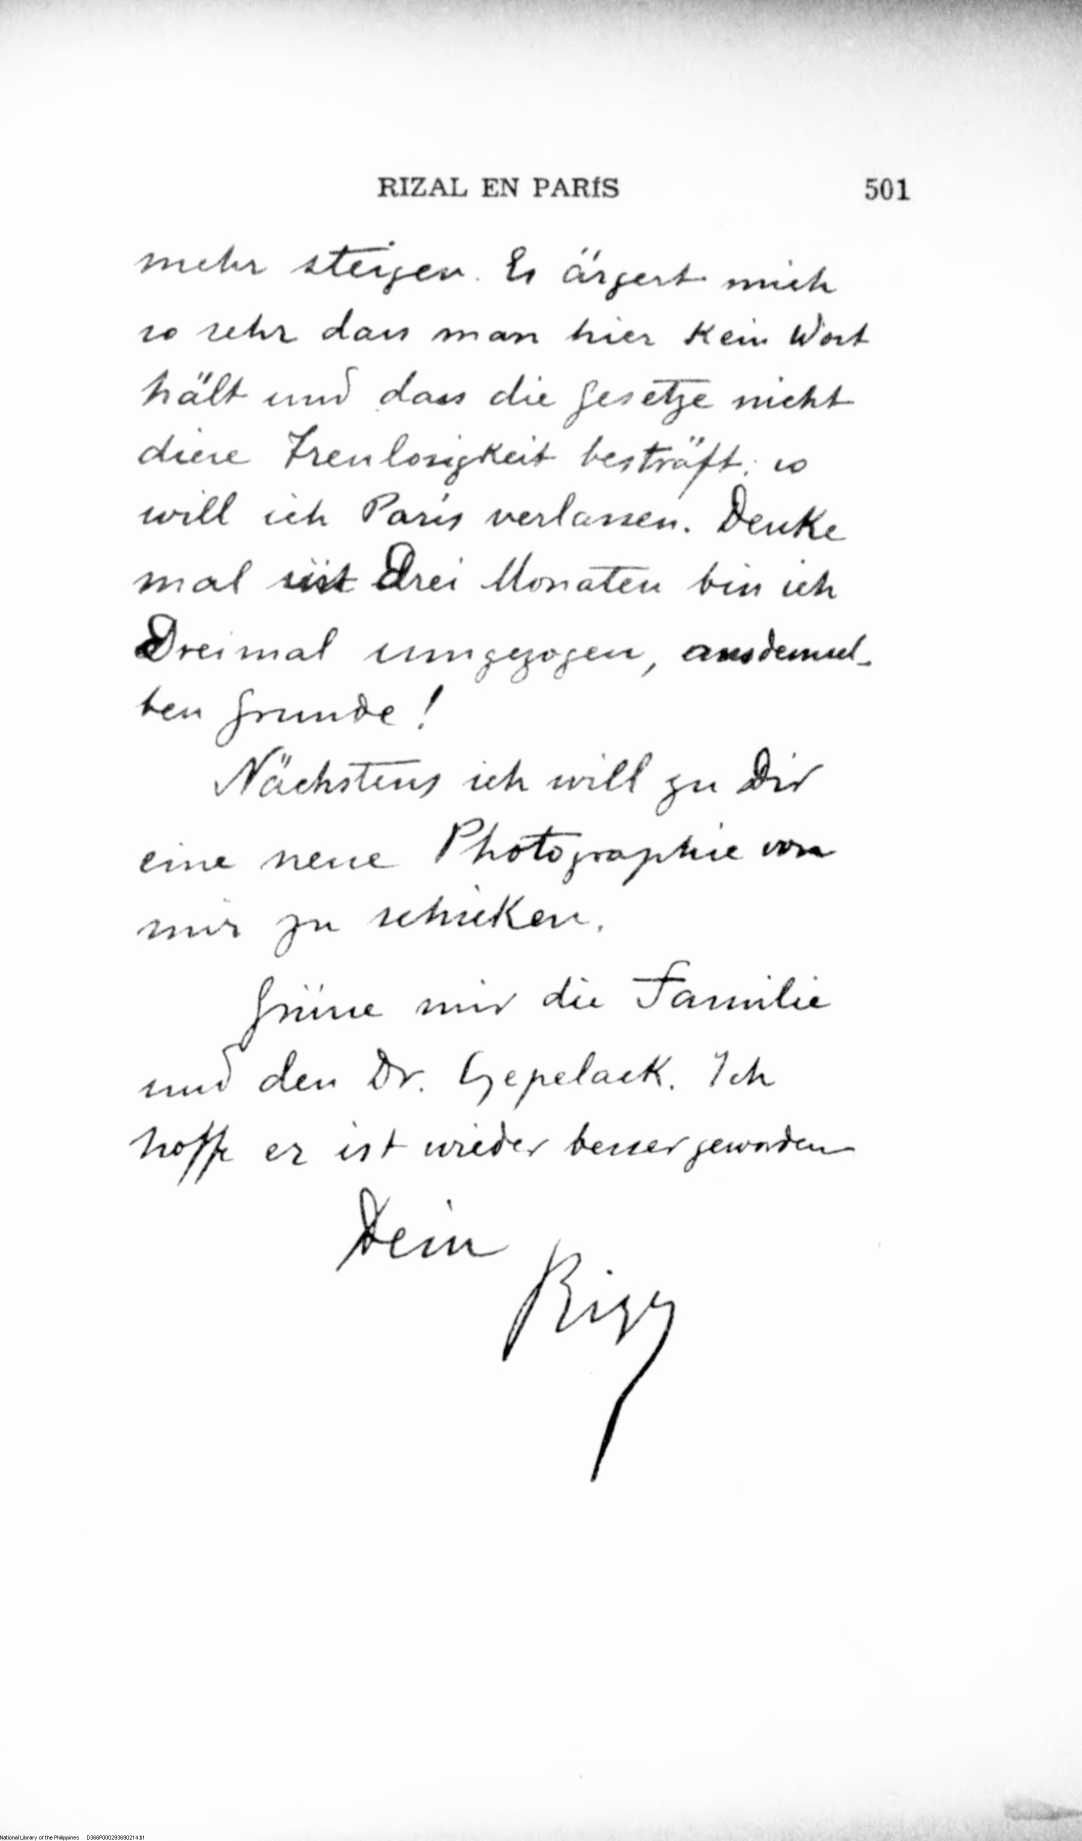 RIZAL EN PARÍS 501
mehr steigen. Es ärgert mich
so sehr dass man hier kein Wort
hält und dass die Gesetze nicht
diese Treulosigkeit besträft; so
will ich Paris verlassen. Denke
mal Drei Monaten bin ich
Dreimal umgezogen, ausdemsel-
ben Grunde!
Nächstens ich will zu Dir
eine neue Photographie von
mir zu schicken.
Grüsse mir die Familie
und den Dr. Czepelack. Ich
hoffe er ist wieder besser geworden
Dein
Rizal
National Library of the Philippines D366P0002936902214.tif